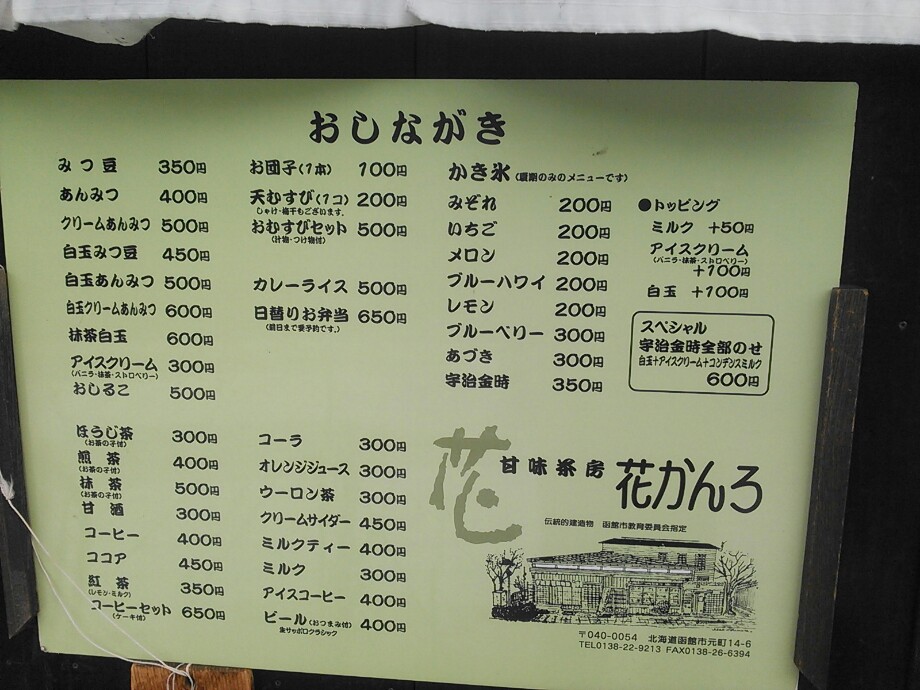 おしながき
みつ豆 350円
あんみつ 400円
クリームあんみつ 500円
白玉みつ豆 450円
白玉あんみつ 500円
白玉クリームあんみつ 600円
抹茶白玉 600円
アイスクリーム 300円
(バニラ・抹茶・ストロベリー)
おしるこ 500円
お団子(1本) 100円
天むすび(1コ) 200円
しゃけ・梅干もございます。
おむすびセット 500円
(汁物・つけ物付)
カレーライス 500円
日替りお弁当 650円
(前日まで要予約です。)
かき氷(夏期のみのメニューです)
みぞれ 200円
いちご 200円
メロン 200円
ブルーハワイ 200円
レモン 200円
ブルーベリー 300円
あづき 300円
宇治金時 350円
●トッピング
ミルク +50円
アイスクリーム
(バニラ・抹茶・ストロベリー)
+100円
白玉 +100円
スペシャル
宇治金時全部のせ
白玉+アイスクリーム+コンデンスミルク
600円
ほうじ茶 300円
(お茶の子付)
煎茶 400円
(お茶の子付)
抹茶 500円
(お茶の子付)
甘酒 300円
コーヒー 400円
ココア 450円
紅茶 350円
(レモン・ミルク)
コーヒーセット 650円
(ケーキ付)
コーラ 300円
オレンジジュース 300円
ウーロン茶 300円
クリームサイダー 450円
ミルクティー 400円
ミルク 300円
アイスコーヒー 400円
ビール(おつまみ付) 400円
生サッポロクラシック
花
甘味茶房 花かんろ
伝統的建造物 函館市教育委員会指定
〒040-0054 北海道函館市元町14-6
TEL0138-22-9213 FAX0138-26-6394